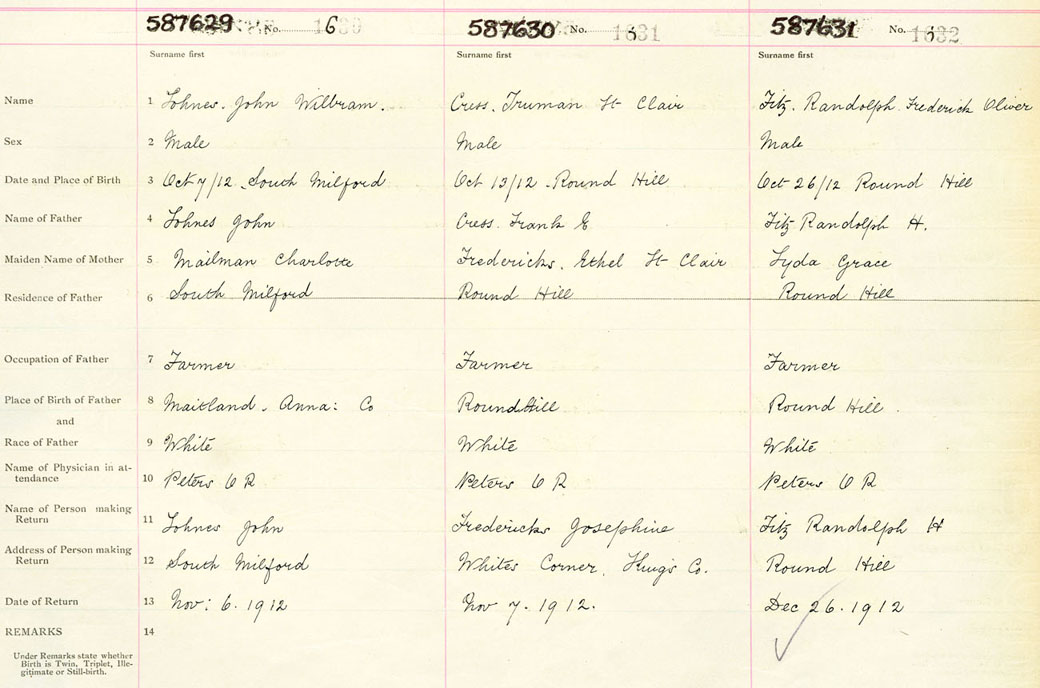 587629 No. 16 587630 No. 1631 587631 No. 1632
Surname first Surname first Surname first
Name 1 Lohnes. John Wilbram. Cress. Truman St Clair Fitz. Randolph Frederick Oliver
Sex 2 Male Male Male
Date and Place of Birth 3 Oct 7/12 South Milford Oct 13/12 Round Hill Oct 26/12 Round Hill
Name of Father 4 Lohnes John Cress. Frank E Fitz Randolph H.
Maiden Name of Mother 5 Mailman Charlotte Fredericks. Ethel St Clair Lyda Grace
Residence of Father 6 South Milford Round Hill Round Hill
Occupation of Father 7 Farmer Farmer Farmer
Place of Birth of Father 8 Maitland. Anna: Co Round Hill Round Hill.
and
Race of Father 9 White White White
Name of Physician in at-
tendance 10 Peters O R Peters O R Peters O R
Name of Person making
Return 11 Lohnes John Fredericks Josephine Fitz Randolph H
Address of Person making
Return 12 South Milford Whites Corner, Kings Co. Round Hill
Date of Return 13 Nov: 6. 1912 Nov 7. 1912. Dec 26. 1912
REMARKS 14
Under Remarks state whether
Birth is Twin, Triplet, Ille-
gitimate or Still-birth.